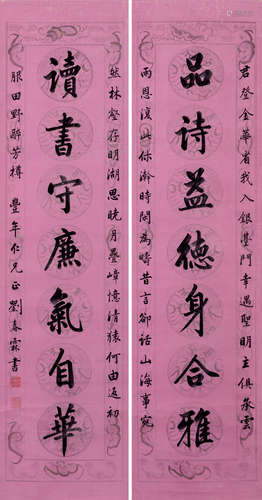 品詩益德身合雅
讀書守廉氣自華
君登金華省我入銀臺門幸遇聖明主俱承雲
雨恩復此休瀚時閑為疇昔言卻話山海事宛
然林壑存明湖思曉月疊嶂憶清猿何由返初
服田野醉芳樽
豐年仁兄正 劉春霖書